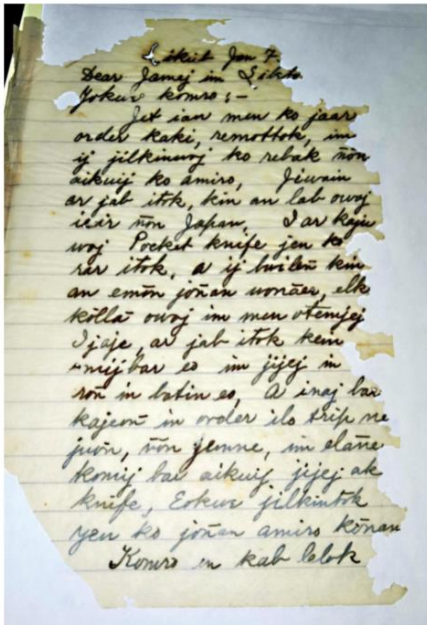 Likiit Jan 7.
Dear Jamej im Libto
Jokur komro :-
Jet ian men ko jaar
order kaki, remottok, im
ij jilkinwoj ko rebak ñōn
aikuij ko amiro, Jiwain
ar jab itok, kin an lab owoj
ieir ñōn Japan, I ar kaju
woj Pocket knife jen ko
rar itok, a ij bwilen kin
an emōn joñan wonāer, elk
kōlla owoj im men otemjej
Ijaje, ar jab itok kein
mijbar eo im jijej in
ron in batin eo, A inaj bar
kajeoñ in order ilo trip ne
juōn, ñōn jemne, im elañe
komij bar aikuij jijej ak
knife, Eokur jilkintok
yen ko joñan amiro kōnan
Komro en kab lolok